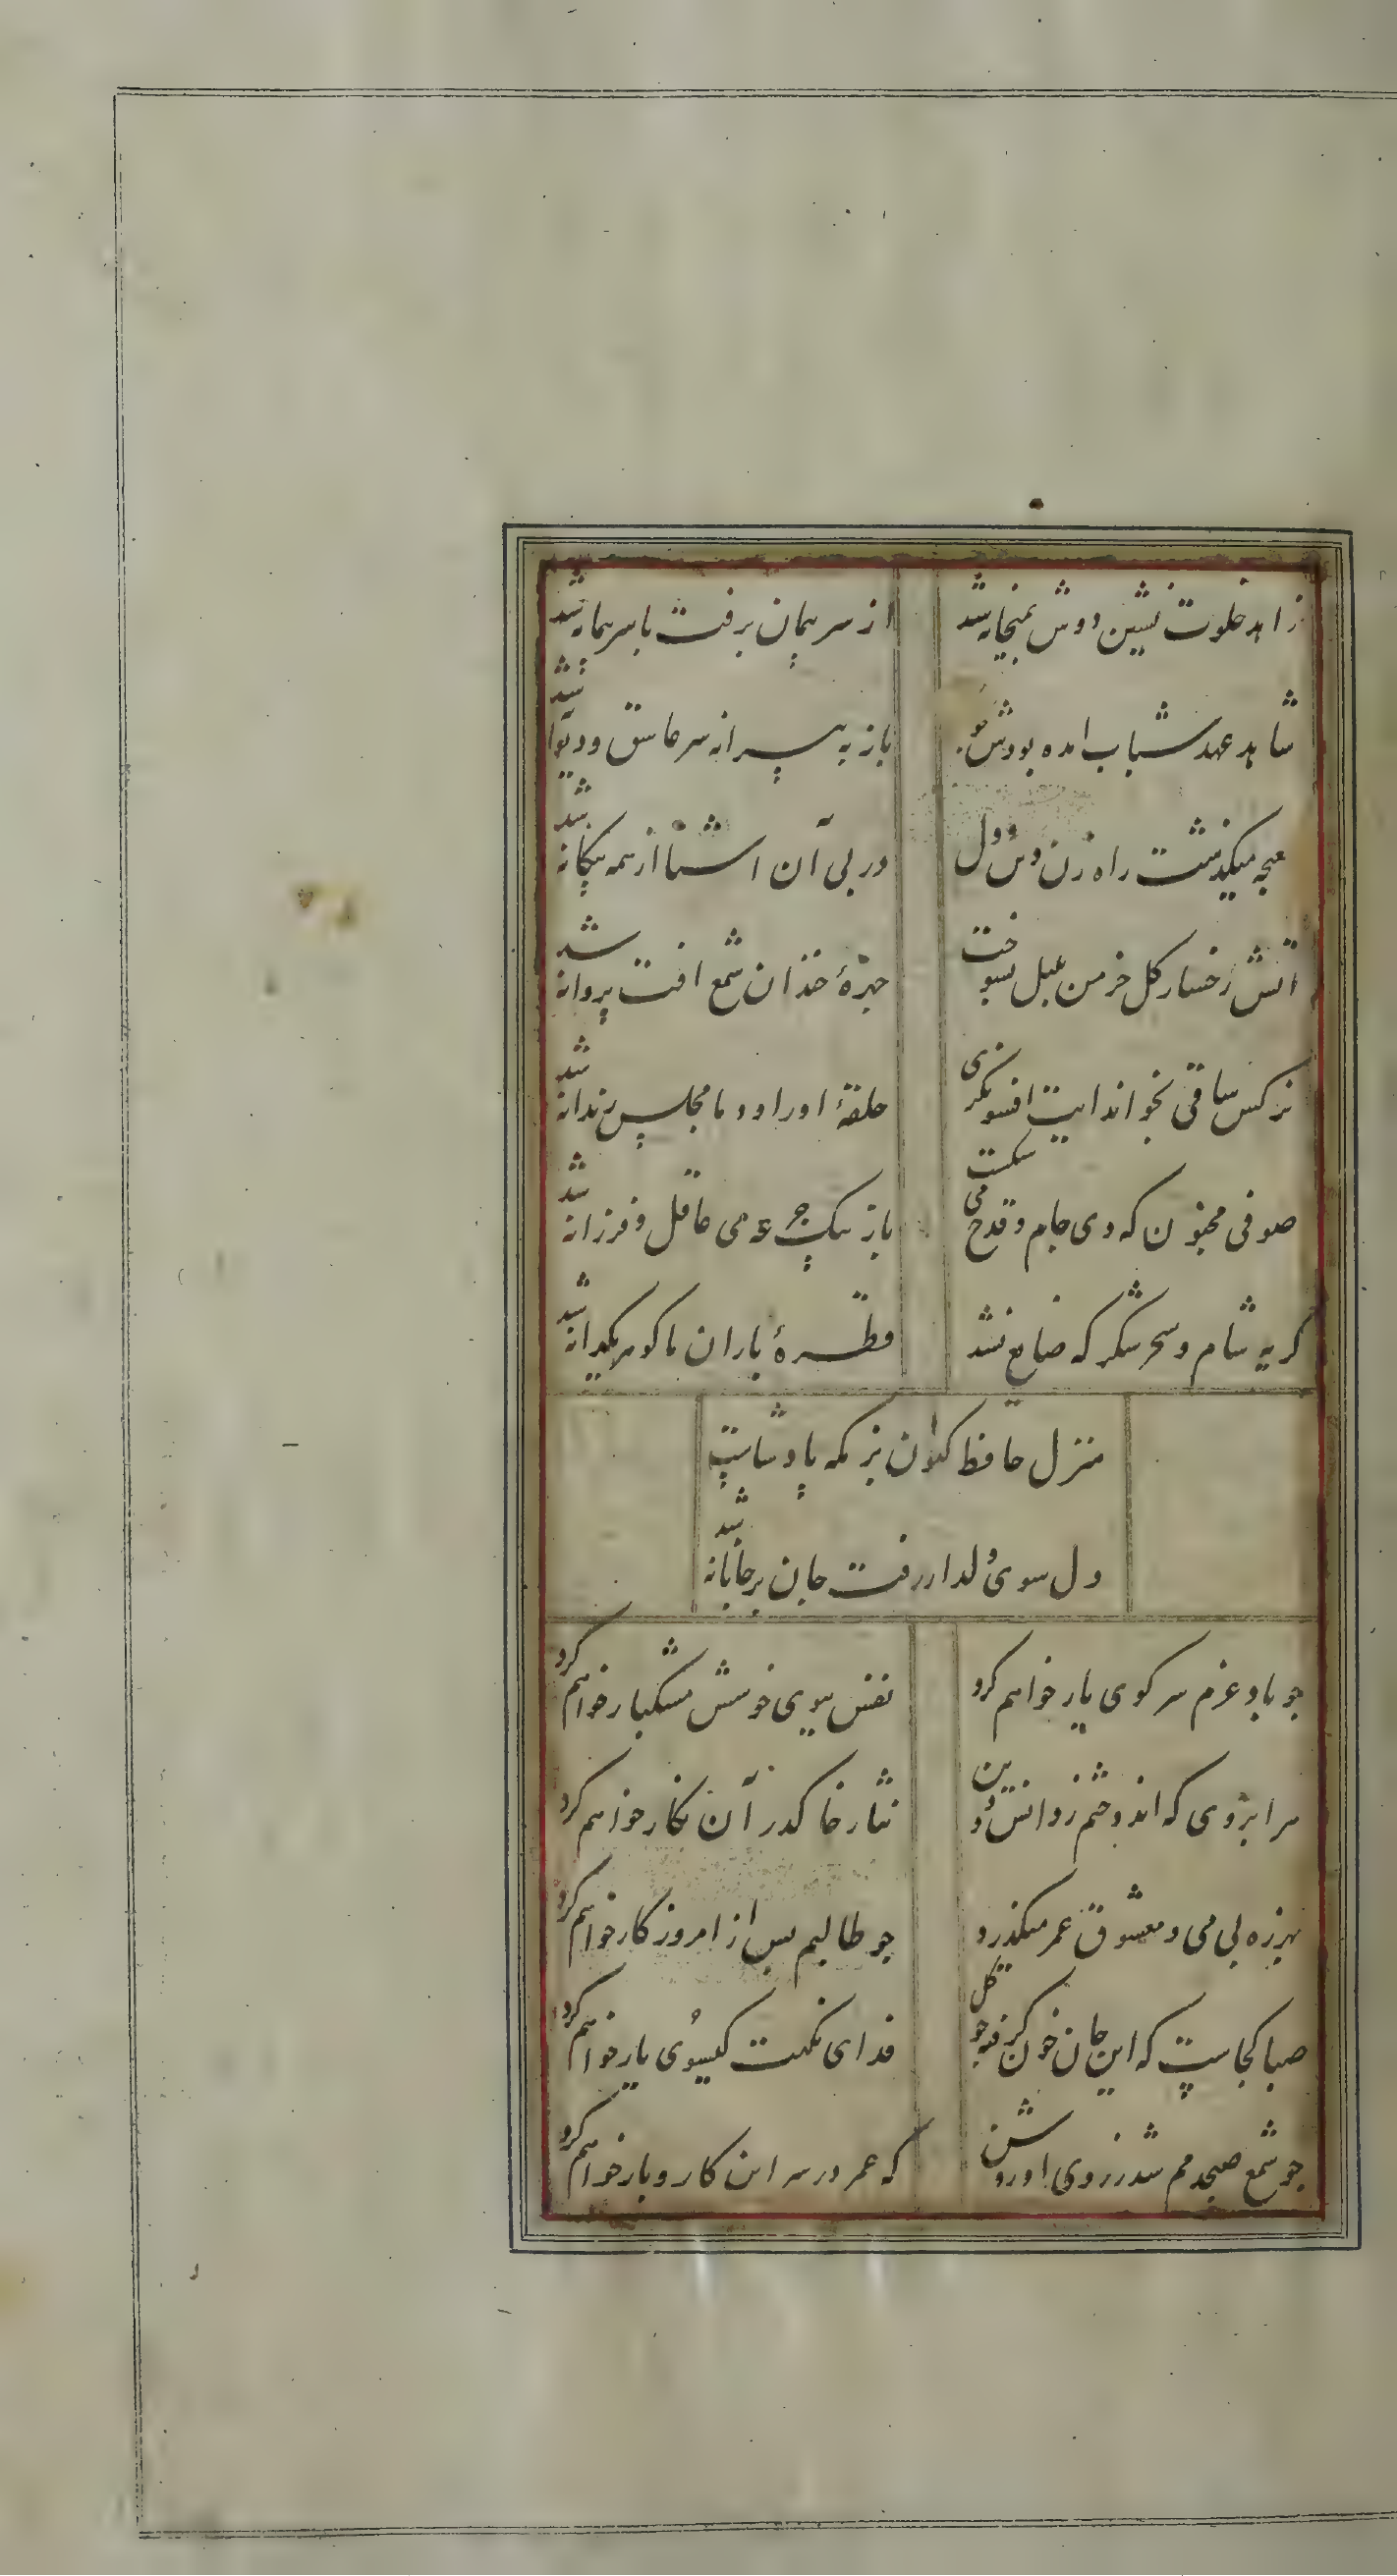 زاهد خلوت نشین دوش بمیخانه شد
از سر پیمان برفت با سر پیمانه شد
شاهد عهد شباب امده بودش بخو
باز به پیرانه سر عاشق و دیوانه شد
مغبچه میگذشت راه زن دین و دل
در پی آن اشنا از همه بیگانه شد
اتش رخسار گل خرمن بلبل بسوخت
چهرهٔ خندان شمع افت پروانه شد
نرکس ساقی بخواند ایت افسونکری
حلقهٔ اوراد ما مجلس رندانه شد
صوفی مجنون که دی جام و قدح می شکست
باز بیک جرعه می عاقل و فرزانه شد
کریه شام و سحر شکر که ضایع نشد
قطرهٔ باران ما کوهر یکدانه شد
منزل حافظ کنون بزمکه پادشاست
دل سوی دلدار رفت جان بر جانانه شد
جو باد عزم سر کوی یار خواهم کرد
نفس ببوی خوشش مشکبار خواهم کرد
هر ابروی که اندوختم ز دانش و دین
نثار خاک در آن نکار خواهم کرد
بهرزه بی می و معشوق عمر میکذرد
بطالتم بس از امروز کار خواهم کرد
صبا کجاست که این جان خون کرفته جو کل
فدای نکهت کیسوی یار خواهم کرد
جو شمع صبحدمم شد ز روی او روشن
که عمر در سر این کار و بار خواهم کرد